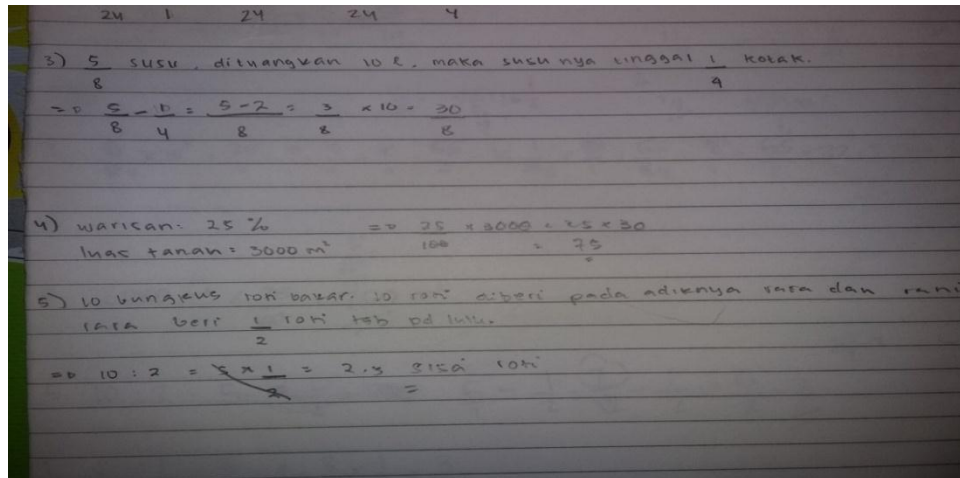 24 1 24 24 4
3) 5/8 susu, dituangkan 10 l, maka susu nya tinggal 1/4 kotak.
=> 5/8 - 1/4 = 5-2/8 = 3/8 x 10 = 30/8
4) warisan: 25 % => 25/100 x 3000 = 25 x 30
luas tanah = 3000 m² = 75
5) 10 bungkus roti bakar. 10 roti diberi pada adiknya rara dan rani
rara beri 1/2 roti tsb pd lulu.
=> 10 : 2 = 5 x 1/2 = 2.5 sisa roti
=